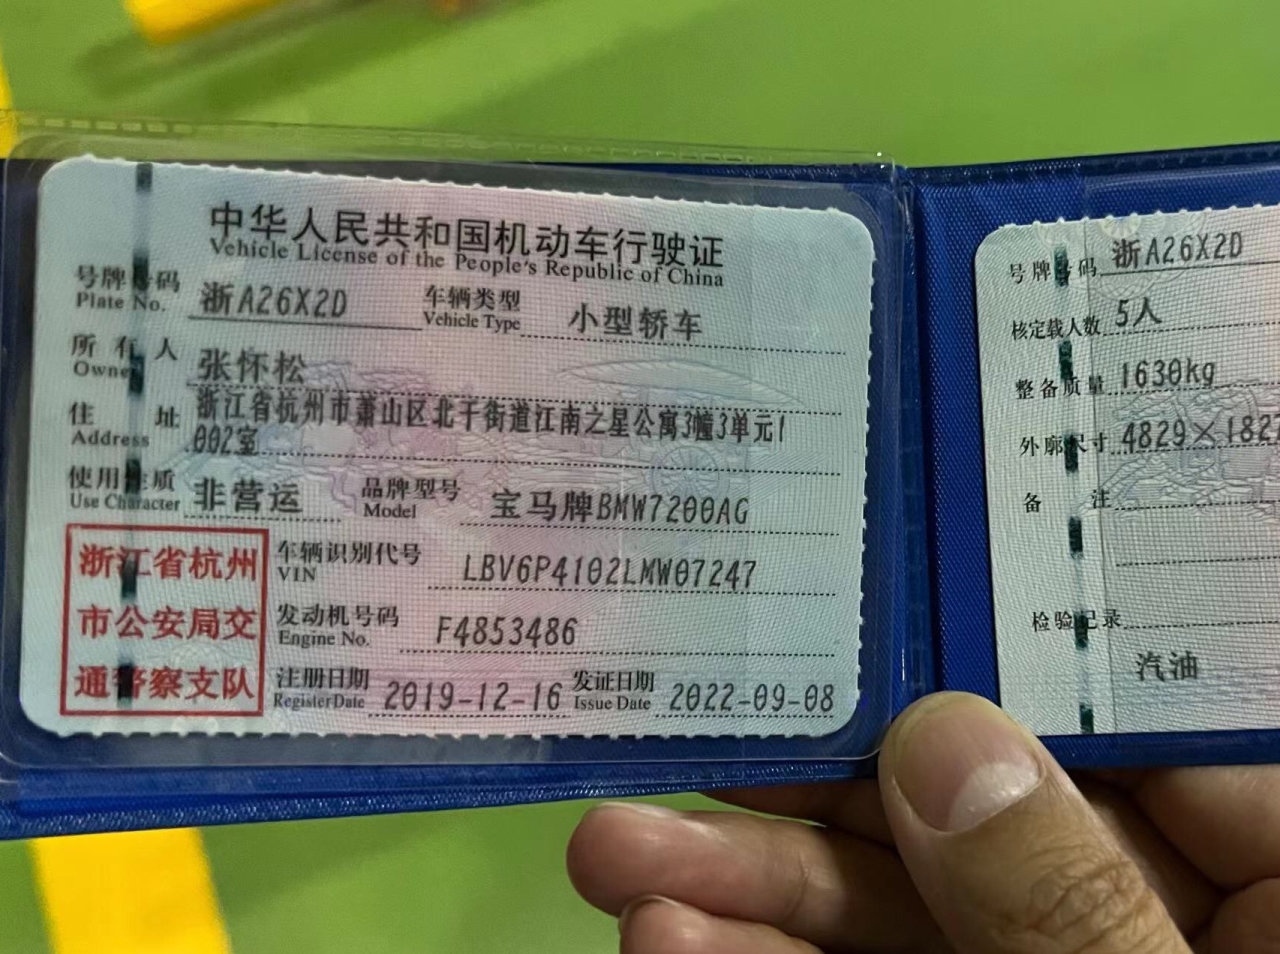 中华人民共和国机动车行驶证
Vehicle License of the People's Republic of China
号牌号码 浙A26X2D 车辆类型 小型轿车
Plate No. Vehicle Type
所有人 张怀松
Owner
住址 浙江省杭州市萧山区北干街道江南之星公寓3幢3单元1
Address 002室
使用性质 非营运 品牌型号 宝马牌BMW7200AG
Use Character Model
浙江省杭州
市公安局交
通警察支队
车辆识别代号 LBV6P4102LMW07247
VIN
发动机号码 F4853486
Engine No.
注册日期 2019-12-16 发证日期 2022-09-08
Register Date Issue Date
号牌号码 浙A26X2D
核定载人数 5人
整备质量 1630kg
外廓尺寸 4829×1827
备注
检验记录
汽油